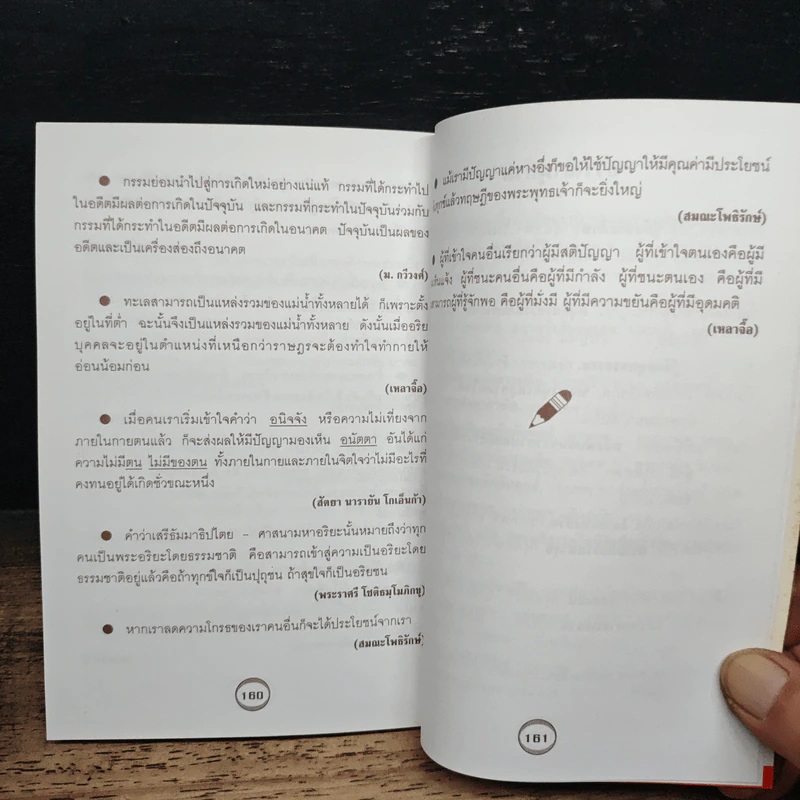 ● กรรมย่อมนำไปสู่การเกิดใหม่อย่างแน่แท้ กรรมที่ได้กระทำไป
ในอดีตมีผลต่อการเกิดในปัจจุบัน และกรรมที่กระทำในปัจจุบันร่วมกับ
กรรมที่กระทำในอดีตมีผลต่อการเกิดในอนาคต ปัจจุบันเป็นผลของ
อดีตและเป็นเครื่องส่องถึงอนาคต
(ม. กวีวงศ์)
● ทะเลสามารถเป็นแหล่งรวมของแม่น้ำทั้งหลายได้ ก็เพราะตั้ง
อยู่ในที่ต่ำ ฉะนั้นจึงเป็นแหล่งรวมของแม่น้ำทั้งหลาย ดังนั้นเมื่ออริย
บุคคลจะอยู่ในตำแหน่งที่เหนือกว่าราษฎรจะต้องทำใจทำกายให้
อ่อนน้อมก่อน
(เหลาจื๊อ)
● เมื่อคนเราเริ่มเข้าใจคำว่า อนิจจัง หรือความไม่เที่ยงจาก
ภายในกายตนแล้ว ก็จะส่งผลให้มีปัญญามองเห็น อนัตตา อันได้แก่
ความไม่มีตน ไม่มีของตน ทั้งภายในกายและภายในจิตใจว่าไม่มีอะไรที่
คงทนอยู่ได้เกิดชั่วขณะหนึ่ง
(สัตยา นารายัน โกเอ็นก้า)
● คำว่าเสรีธัมมาธิปไตย - ศาสนามหาอริยะนั้นหมายถึงว่าทุก
คนเป็นพระอริยะโดยธรรมชาติ คือสามารถเข้าสู่ความเป็นอริยะโดย
ธรรมชาติอยู่แล้วคือถ้าทุกข์ใจก็เป็นปุถุชน ถ้าสุขใจก็เป็นอริยชน
(พระราศรี โชติธมฺโมภิกขุ)
● หากเราลดความโกรธของเราคนอื่นก็จะได้ประโยชน์จากเรา
(สมณะโพธิรักษ์)
160
● แม้เรามีปัญญาแค่หางอึ่งก็ขอให้ใช้ปัญญาให้มีคุณค่ามีประโยชน์
ทุกข์แล้วทฤษฎีของพระพุทธเจ้าก็จะยิ่งใหญ่
(สมณะโพธิรักษ์)
● ผู้ที่เข้าใจคนอื่นเรียกว่าผู้มีสติปัญญา ผู้ที่เข้าใจตนเองคือผู้มี
ผู้ที่ชนะคนอื่นคือผู้ที่มีกำลัง ผู้ที่ชนะตนเอง คือผู้ที่มี
ผู้ที่รู้จักพอ คือผู้ที่มั่งมี ผู้ที่มีความขยันคือผู้ที่มีอุดมคติ
(เหลาจื๊อ)
161